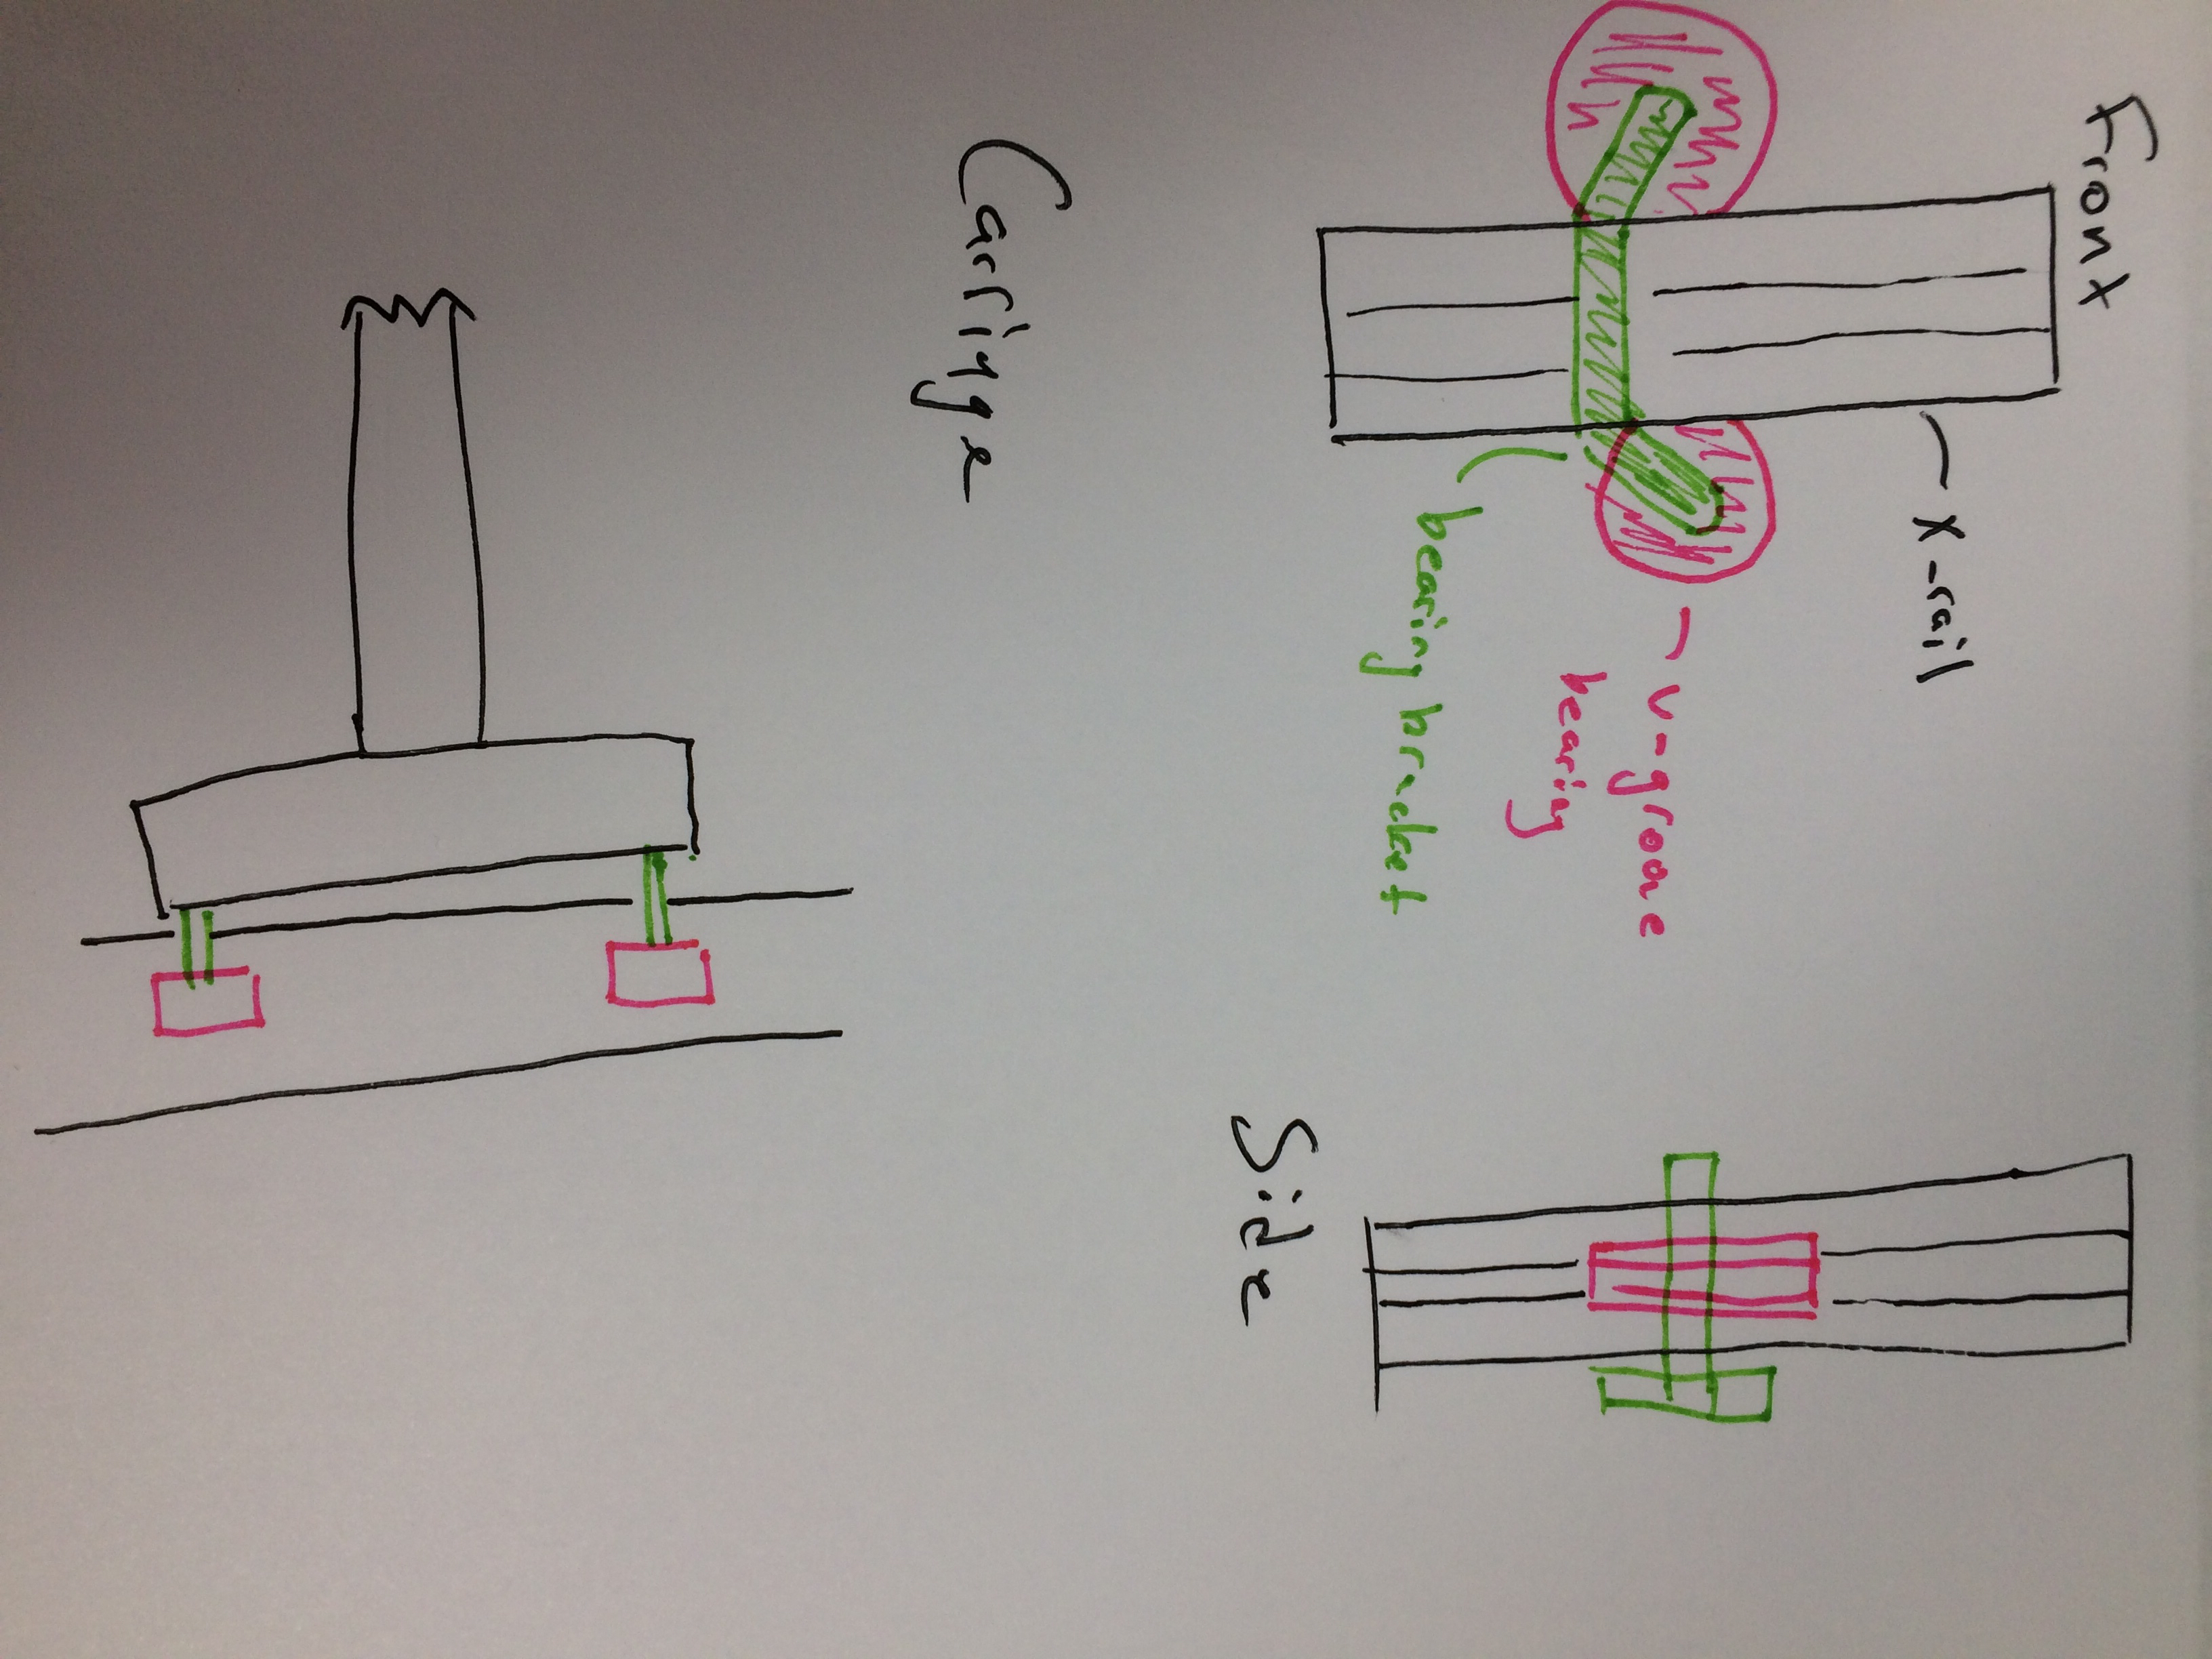 Front
X-rail
v-groove
bearing
bearing bracket
Side
Carriage